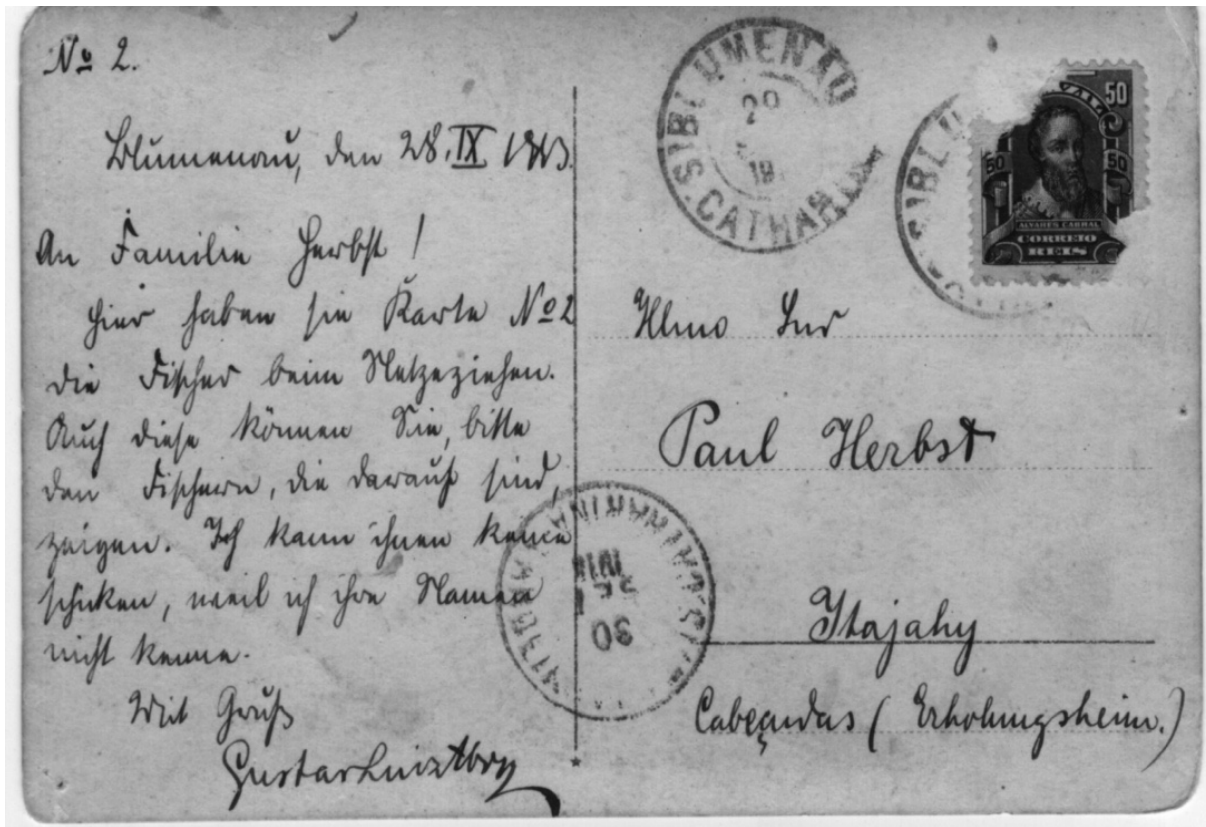 No 2.
Blumenau, den 28. IX 1913.
An Familie Herbst!
Hier haben sie Karte No 2
die Fischer beim Netzeziehen.
Auch diese können Sie, bitte
den Fischern, die darauf sind,
zeigen. Ich kann ihnen keine
schicken, weil ich ihre Namen
nicht kenne.
Mit Gruß
Gustav
BLUMENAU
(S. CATHAR
BLU
50
50
50
ALVARES CABRAL
CORREIO
REIS
Illmo Snr
Paul Herbst
Itajahy
Cabeçudas (Erholungsheim.)
30